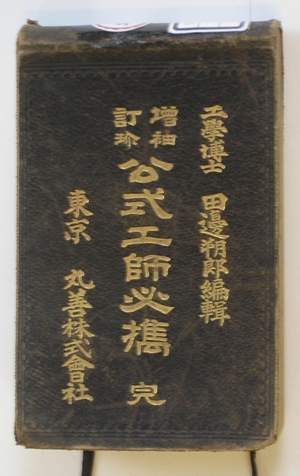 工學博士 田邊朔郎編輯
增訂 袖珍 公式工師必攜 完
東京 丸善株式會社